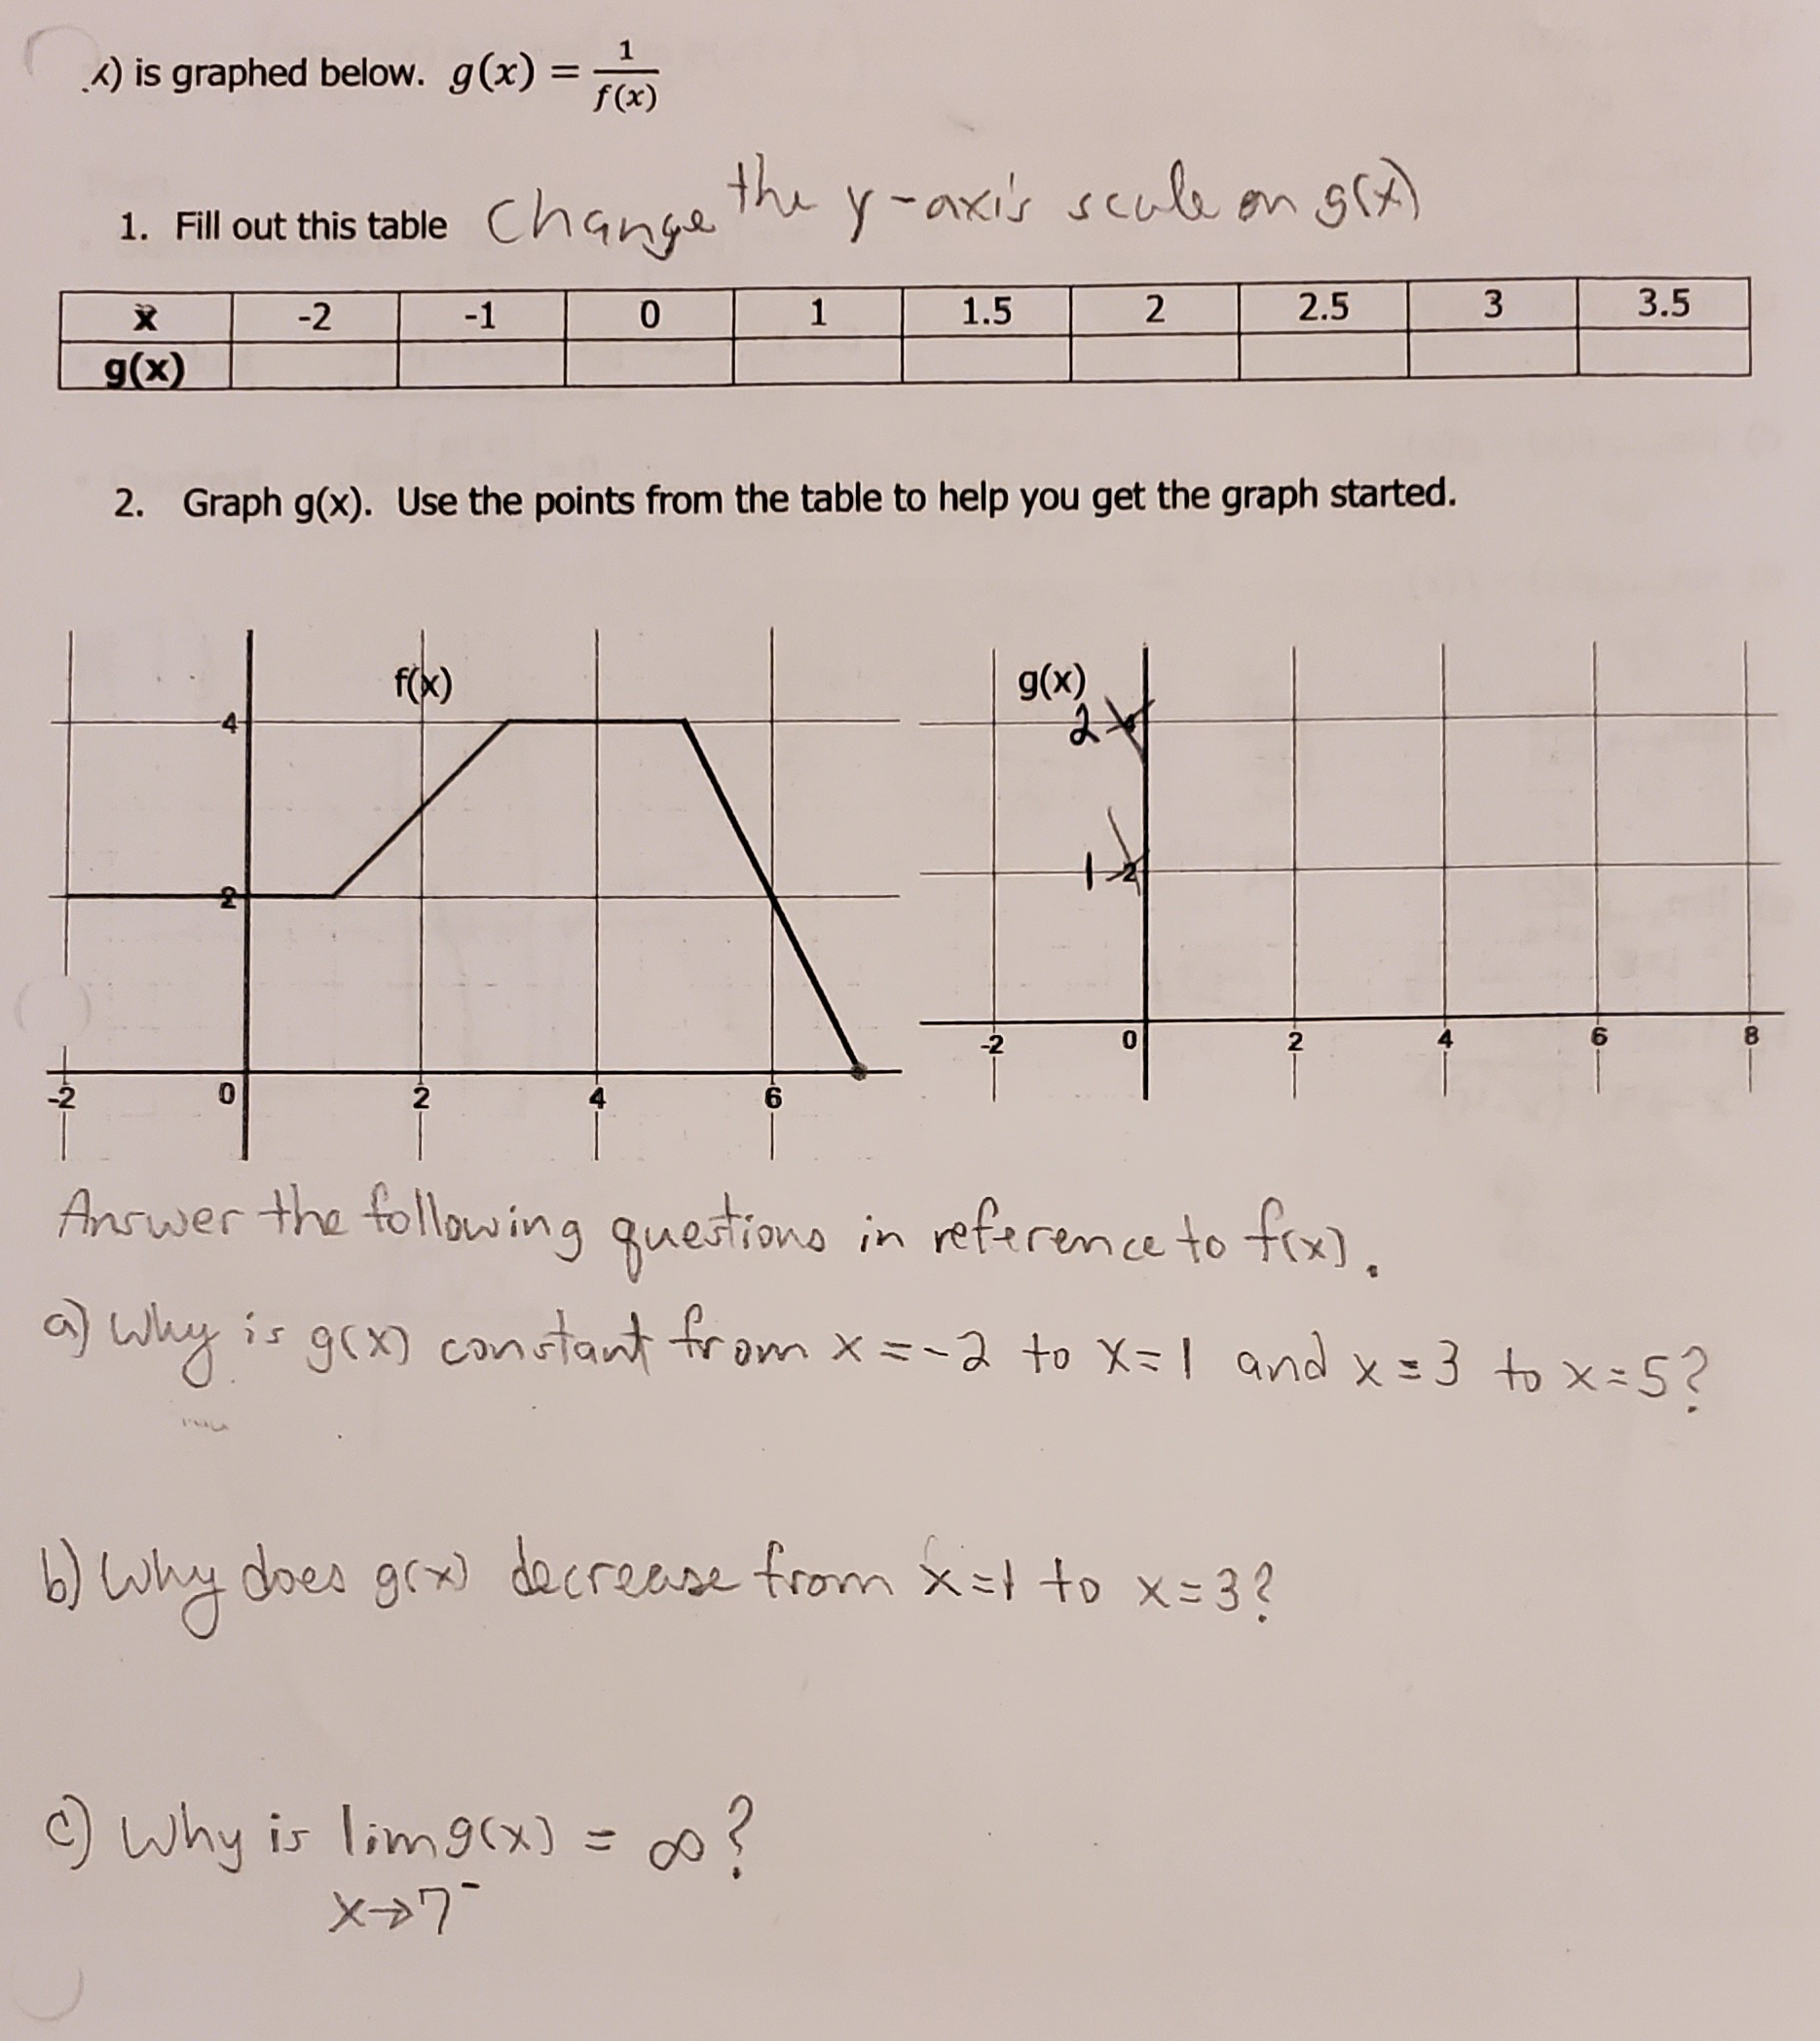 x) is graphed below. g(x) = 1/f(x)
1. Fill out this table Change the y-axis scale on g(x)
x -2 -1 0 1 1.5 2 2.5 3 3.5
g(x)
2. Graph g(x). Use the points from the table to help you get the graph started.
f(x)
4
2
-2 0 2 4 6
g(x)
2
1
-2 0 2 4 6 8
Answer the following questions in reference to f(x).
a) Why is g(x) constant from x=-2 to x=1 and x=3 to x=5?
b) Why does g(x) decrease from x=1 to x=3?
c) Why is lim g(x) = ∞?
x→7⁻